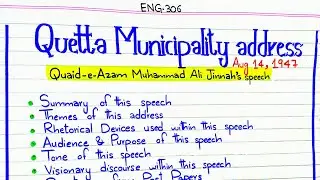 ENG-306
Quetta Municipality address
Aug 14, 1947
Quaid-e-Azam Muhammad Ali Jinnah's speech
• Summary of this speech
• Themes of this address
• Rhetorical Devices used within this speech
• Audience & Purpose of this speech
• Tone of this speech
• Visionary discourse within this speech
from Past Papers